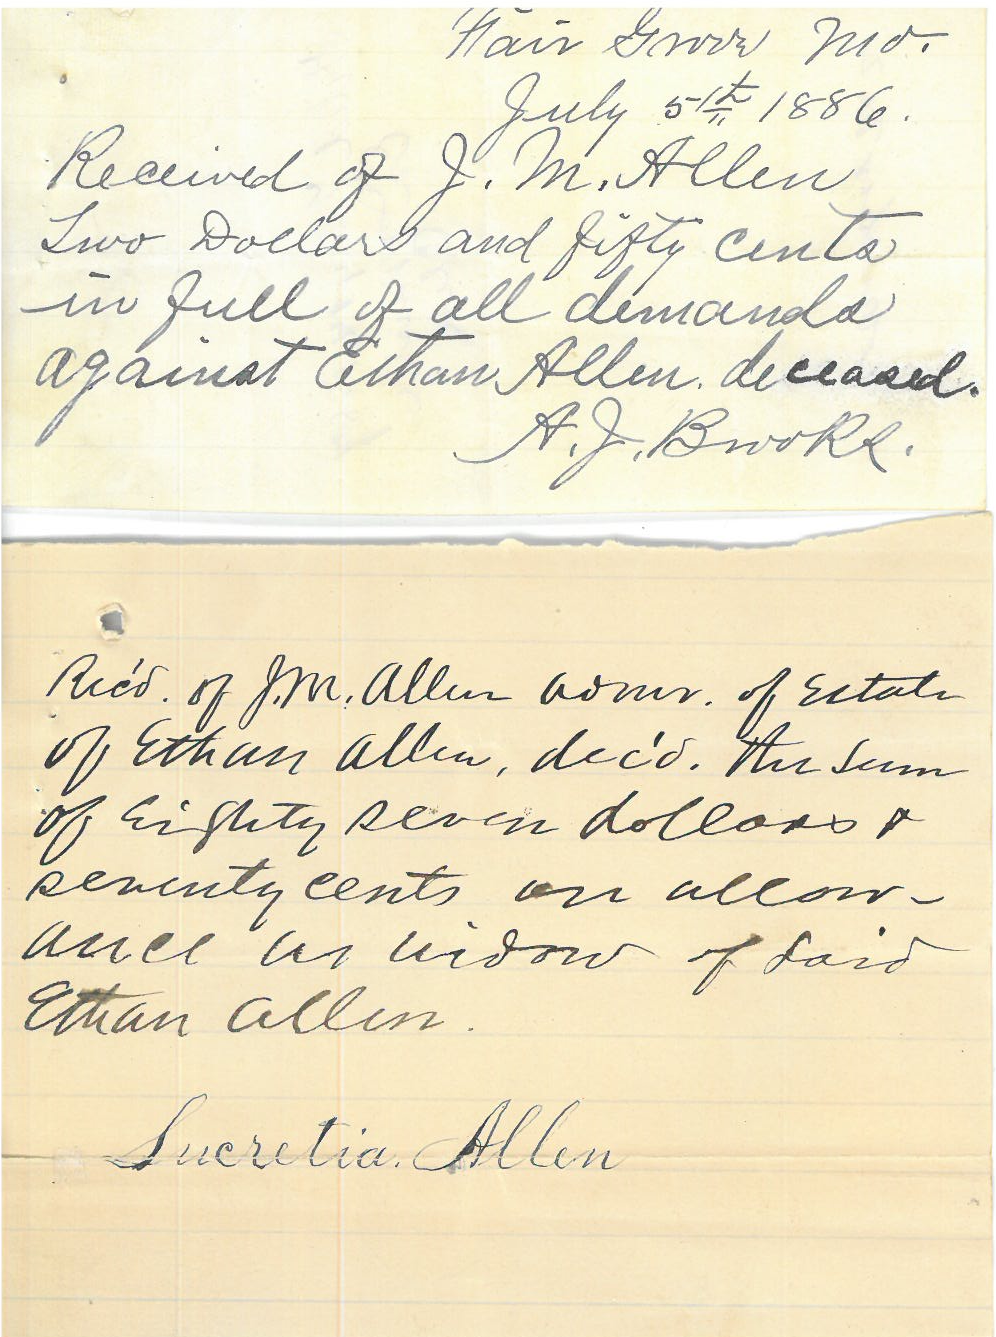 Fair Grove Mo.
July 5th 1886.
Received of J. M. Allen
Two Dollars and fifty cents
in full of all demands
against Ethan Allen. deceased.
A. J. Brooks.
Rec'd. of J. M. Allen admr. of Estate
of Ethan Allen, dec'd. the sum
of Eighty seven dollars &
seventy cents on allow-
ance as widow of said
Ethan Allen.
Lucretia. Allen